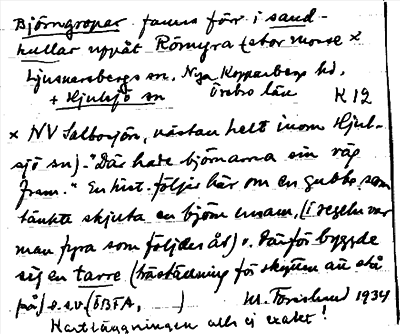 Björngropar fanns förr i sand-
kullar uppåt Römyra (stor mosse x
Ljusnarsbergs sn, Nya Kopparbergs hd,
+ Hjulsjö sn Örebro län K 12
x NV Salbosjön, västan helt inom Hjul-
sjö sn). "Där hade björnarna sin väg
fram." En hist. följer här om en gubbe, som
tänkte skjuta en björn ensam, (i regeln var
man fyra som följdes åt) o. därför byggde
sig en tarre (träställning för skytten att stå
på) o.s.v. (ÖBFA, )
1934
Kartläggningen allt ej exakt!